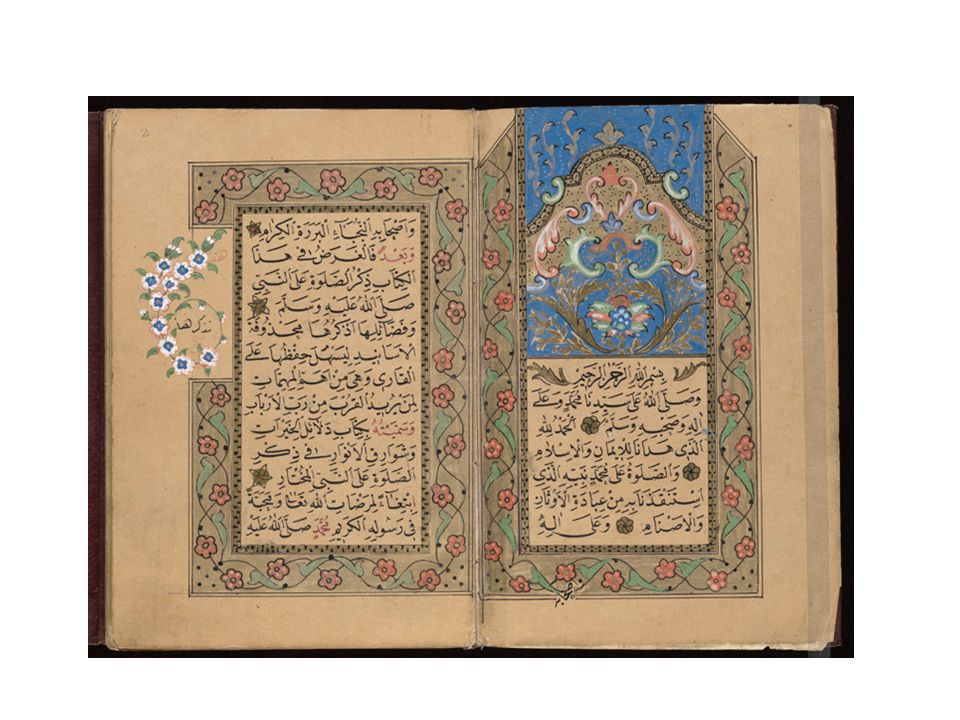 بِسْمِ اللهِ الرَّحْمٰنِ الرَّحِيمِ
وَصَلَّى اللهُ عَلَى سَيِّدِنَا مُحَمَّدٍ وَعَلَى
اٰلِهِ وَصَحْبِهِ وَسَلَّمَ اَلْحَمْدُ لِلهِ
الَّذِى هَدَانَا لِلْاِيمَانِ وَالْاِسْلَامِ
وَالصَّلٰوةُ عَلَى مُحَمَّدٍ نَبِيِّهِ الَّذِى
اسْتَنْقَذَنَا بِهِ مِنْ عِبَادَةِ الْاَوْثَانِ
وَالْاَصْنَامِ وَعَلَى اٰلِهِ
2
وَاَصْحَابِهِ النُّجَبَاءِ الْبَرَرَةِ الْكِرَامِ
وَبَعْدُ فَالْغَرَضُ فِى هٰذَا
الْكِتَابِ ذِكْرُ الصَّلٰوةِ عَلَى النَّبِىِّ
صَلَّى اللهُ عَلَيْهِ وَسَلَّمَ
وَفَضَائِلِهَا اَذْكُرُهَا مَحْذُوفَةَ
الْاَسَانِيدِ لِيَسْهُلَ حِفْظُهَا عَلَى
الْقَارِى وَهِىَ مِنْ اَهَمِّ الْمُهِمَّاتِ
لِمَنْ يُرِيدُ الْقُرْبَ مِنْ رَبِّ الْاَرْبَابِ
وَسَمَّيْتُهُ بِكِتَابِ دَلَائِلِ الْخَيْرَاتِ
وَشَوَارِقِ الْاَنْوَارِ فِى ذِكْرِ
الصَّلٰوةِ عَلَى النَّبِىِّ الْمُخْتَارِ
اِبْتِغَاءً لِمَرْضَاتِ اللهِ تَعَالٰى وَمَحَبَّةً
فِى رَسُولِهِ الْكَرِيمِ مُحَمَّدٍ صَلَّى اللهُ عَلَيْهِ
نذكرها